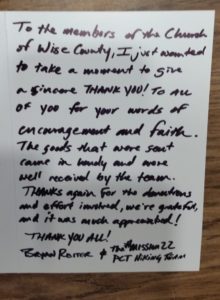 To the members of the Church
of Wise County, I just wanted
to take a moment to give
a sincere THANK YOU! To ALL
of you for your words of
encouragement and faith.
The goods that were sent
came in handy and were
well received by the team.
THANKS again for the donations
and effort involved, we're grateful,
and it was much appreciated!
THANK YOU ALL!
BRYAN & The Mission 22
PCT Hiking Team